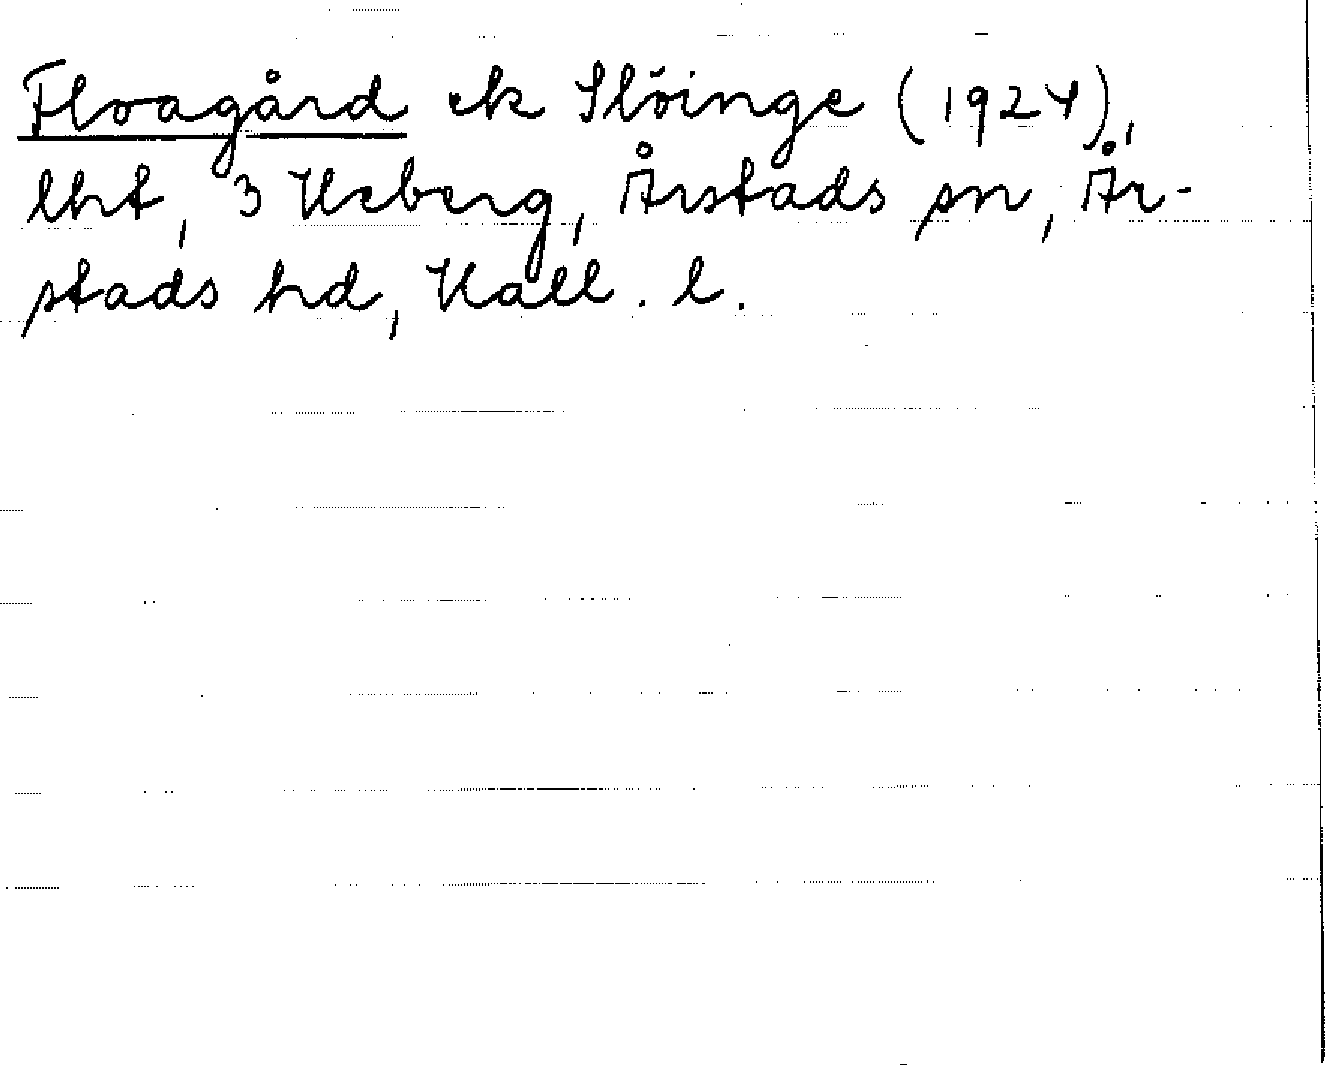 Floagård ek Slöinge (1924),
lht, 3 Heberg, Årstads sn, År-
stads hd, Hall. l.